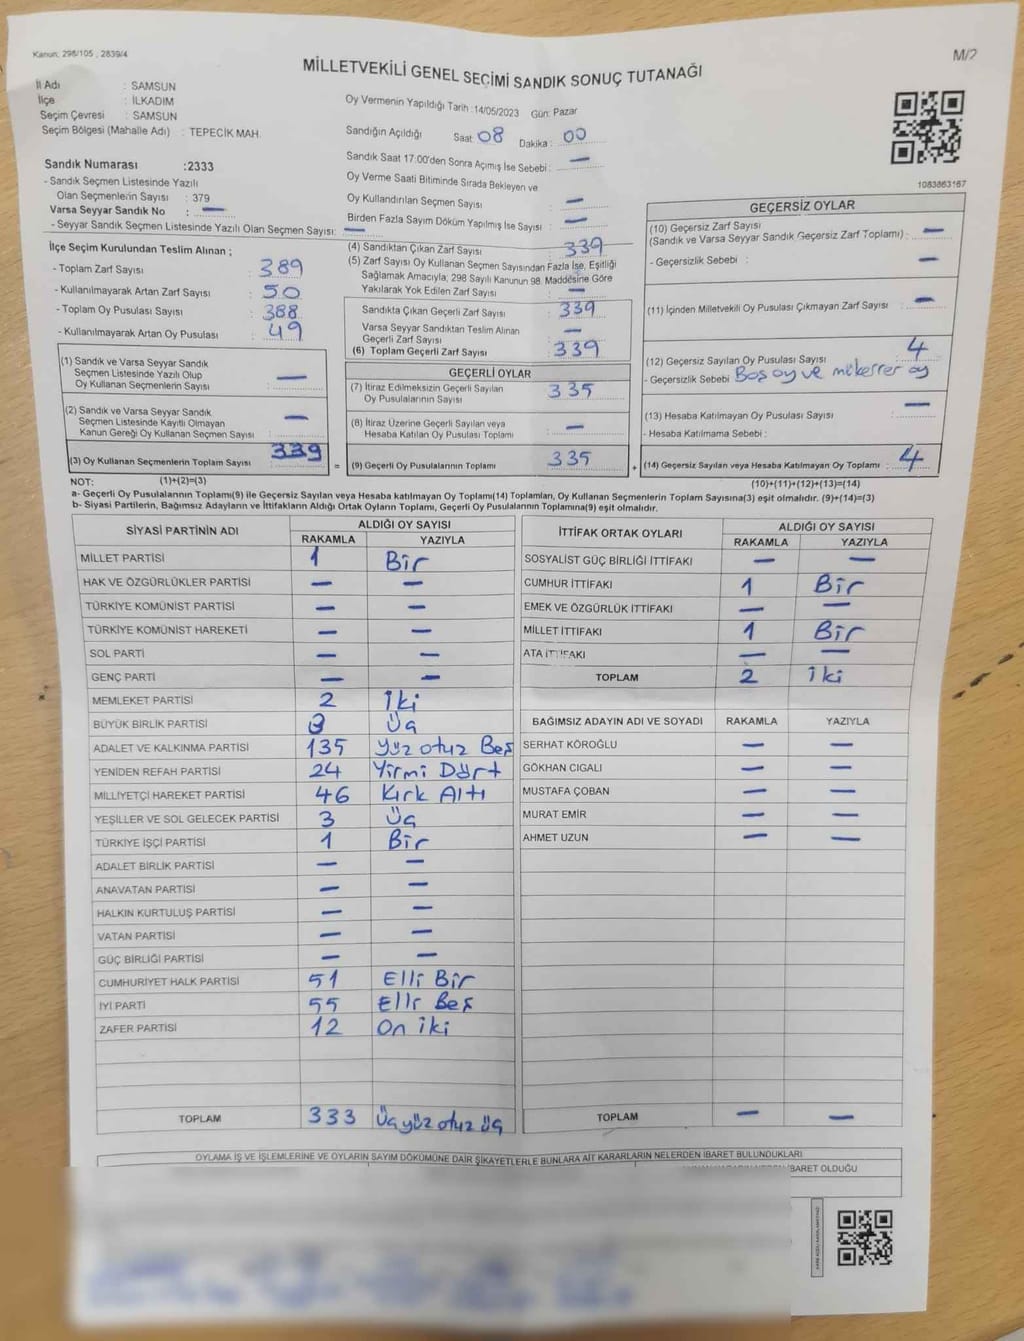 Kanun: 298/105 , 2839/4
M/2
MİLLETVEKİLİ GENEL SEÇİMİ SANDIK SONUÇ TUTANAĞI
İl Adı : SAMSUN
İlçe : İLKADIM
Seçim Çevresi : SAMSUN
Seçim Bölgesi (Mahalle Adı) : TEPECİK MAH.
Oy Vermenin Yapıldığı Tarih :14/05/2023 Gün: Pazar
Sandığın Açıldığı Saat: 08 Dakika : 00
Sandık Saat 17:00'den Sonra Açımış İse Sebebi : —
Oy Verme Saati Bitiminde Sırada Bekleyen ve
Oy Kullandırılan Seçmen Sayısı : —
Birden Fazla Sayım Döküm Yapılmış İse Sayısı : —
1083863167
Sandık Numarası :2333
- Sandık Seçmen Listesinde Yazılı
Olan Seçmenlerin Sayısı : 379
Varsa Seyyar Sandık No : —
- Seyyar Sandık Seçmen Listesinde Yazılı Olan Seçmen Sayısı: —
İlçe Seçim Kurulundan Teslim Alınan ;
- Toplam Zarf Sayısı : 389
- Kullanılmayarak Artan Zarf Sayısı : 50
- Toplam Oy Pusulası Sayısı : 388
- Kullanılmayarak Artan Oy Pusulası : 49
(1) Sandık ve Varsa Seyyar Sandık
Seçmen Listesinde Yazılı Olup
Oy Kullanan Seçmenlerin Sayısı : —
(2) Sandık ve Varsa Seyyar Sandık
Seçmen Listesinde Kayıtlı Olmayan
Kanun Gereği Oy Kullanan Seçmen Sayısı : —
(3) Oy Kullanan Seçmenlerin Toplam Sayısı : 339
(1)+(2)=(3)
(4) Sandıktan Çıkan Zarf Sayısı : 339
(5) Zarf Sayısı Oy Kullanan Seçmen Sayısından Fazla İse, Eşitliği
Sağlamak Amacıyla; 298 Sayılı Kanunun 98. Maddesine Göre
Yakılarak Yok Edilen Zarf Sayısı : —
Sandıkta Çıkan Geçerli Zarf Sayısı : 339
Varsa Seyyar Sandıktan Teslim Alınan
Geçerli Zarf Sayısı : —
(6) Toplam Geçerli Zarf Sayısı : 339
GEÇERLİ OYLAR
(7) İtiraz Edilmeksizin Geçerli Sayılan
Oy Pusulalarının Sayısı : 335
(8) İtiraz Üzerine Geçerli Sayılan veya
Hesaba Katılan Oy Pusulası Toplamı : —
= (9) Geçerli Oy Pusulalarının Toplamı : 335
GEÇERSİZ OYLAR
(10) Geçersiz Zarf Sayısı
(Sandık ve Varsa Seyyar Sandık Geçersiz Zarf Toplamı) : —
- Geçersizlik Sebebi : —
(11) İçinden Milletvekili Oy Pusulası Çıkmayan Zarf Sayısı : —
(12) Geçersiz Sayılan Oy Pusulası Sayısı : 4
- Geçersizlik Sebebi : Boş oy ve mükerrer oy
(13) Hesaba Katılmayan Oy Pusulası Sayısı : —
- Hesaba Katılmama Sebebi :
+ (14) Geçersiz Sayılan veya Hesaba Katılmayan Oy Toplamı : 4
(10)+(11)+(12)+(13)=(14)
NOT:
a- Geçerli Oy Pusulalarının Toplamı(9) ile Geçersiz Sayılan veya Hesaba katılmayan Oy Toplamı(14) Toplamları, Oy Kullanan Seçmenlerin Toplam Sayısına(3) eşit olmalıdır. (9)+(14)=(3)
b- Siyasi Partilerin, Bağımsız Adayların ve İttifakların Aldığı Ortak Oyların Toplamı, Geçerli Oy Pusulalarının Toplamına(9) eşit olmalıdır.
SİYASİ PARTİNİN ADI ALDIĞI OY SAYISI
RAKAMLA YAZIYLA
MİLLET PARTİSİ 1 Bir
HAK VE ÖZGÜRLÜKLER PARTİSİ — —
TÜRKİYE KOMÜNİST PARTİSİ — —
TÜRKİYE KOMÜNİST HAREKETİ — —
SOL PARTİ — —
GENÇ PARTİ — —
MEMLEKET PARTİSİ 2 İki
BÜYÜK BİRLİK PARTİSİ 3 Üç
ADALET VE KALKINMA PARTİSİ 135 Yüz otuz Beş
YENİDEN REFAH PARTİSİ 24 Yirmi Dört
MİLLİYETÇİ HAREKET PARTİSİ 46 Kırk Altı
YEŞİLLER VE SOL GELECEK PARTİSİ 3 Üç
TÜRKİYE İŞÇİ PARTİSİ 1 Bir
ADALET BİRLİK PARTİSİ — —
ANAVATAN PARTİSİ — —
HALKIN KURTULUŞ PARTİSİ — —
VATAN PARTİSİ — —
GÜÇ BİRLİĞİ PARTİSİ — —
CUMHURİYET HALK PARTİSİ 51 Elli Bir
İYİ PARTİ 55 Elli Beş
ZAFER PARTİSİ 12 On iki
TOPLAM 333 Üçyüz otuz üç
İTTİFAK ORTAK OYLARI ALDIĞI OY SAYISI
RAKAMLA YAZIYLA
SOSYALİST GÜÇ BİRLİĞİ İTTİFAKI — —
CUMHUR İTTİFAKI 1 Bir
EMEK VE ÖZGÜRLÜK İTTİFAKI — —
MİLLET İTTİFAKI 1 Bir
ATA İTTİFAKI — —
TOPLAM 2 iki
BAĞIMSIZ ADAYIN ADI VE SOYADI RAKAMLA YAZIYLA
SERHAT KÖROĞLU — —
GÖKHAN CIGALI — —
MUSTAFA ÇOBAN — —
MURAT EMİR — —
AHMET UZUN — —
TOPLAM — —
OYLAMA İŞ VE İŞLEMLERİNE VE OYLARIN SAYIM DÖKÜMÜNE DAİR ŞİKAYETLERLE BUNLARA AİT KARARLARIN NELERDEN İBARET BULUNDUKLARI
İBARET OLDUĞU